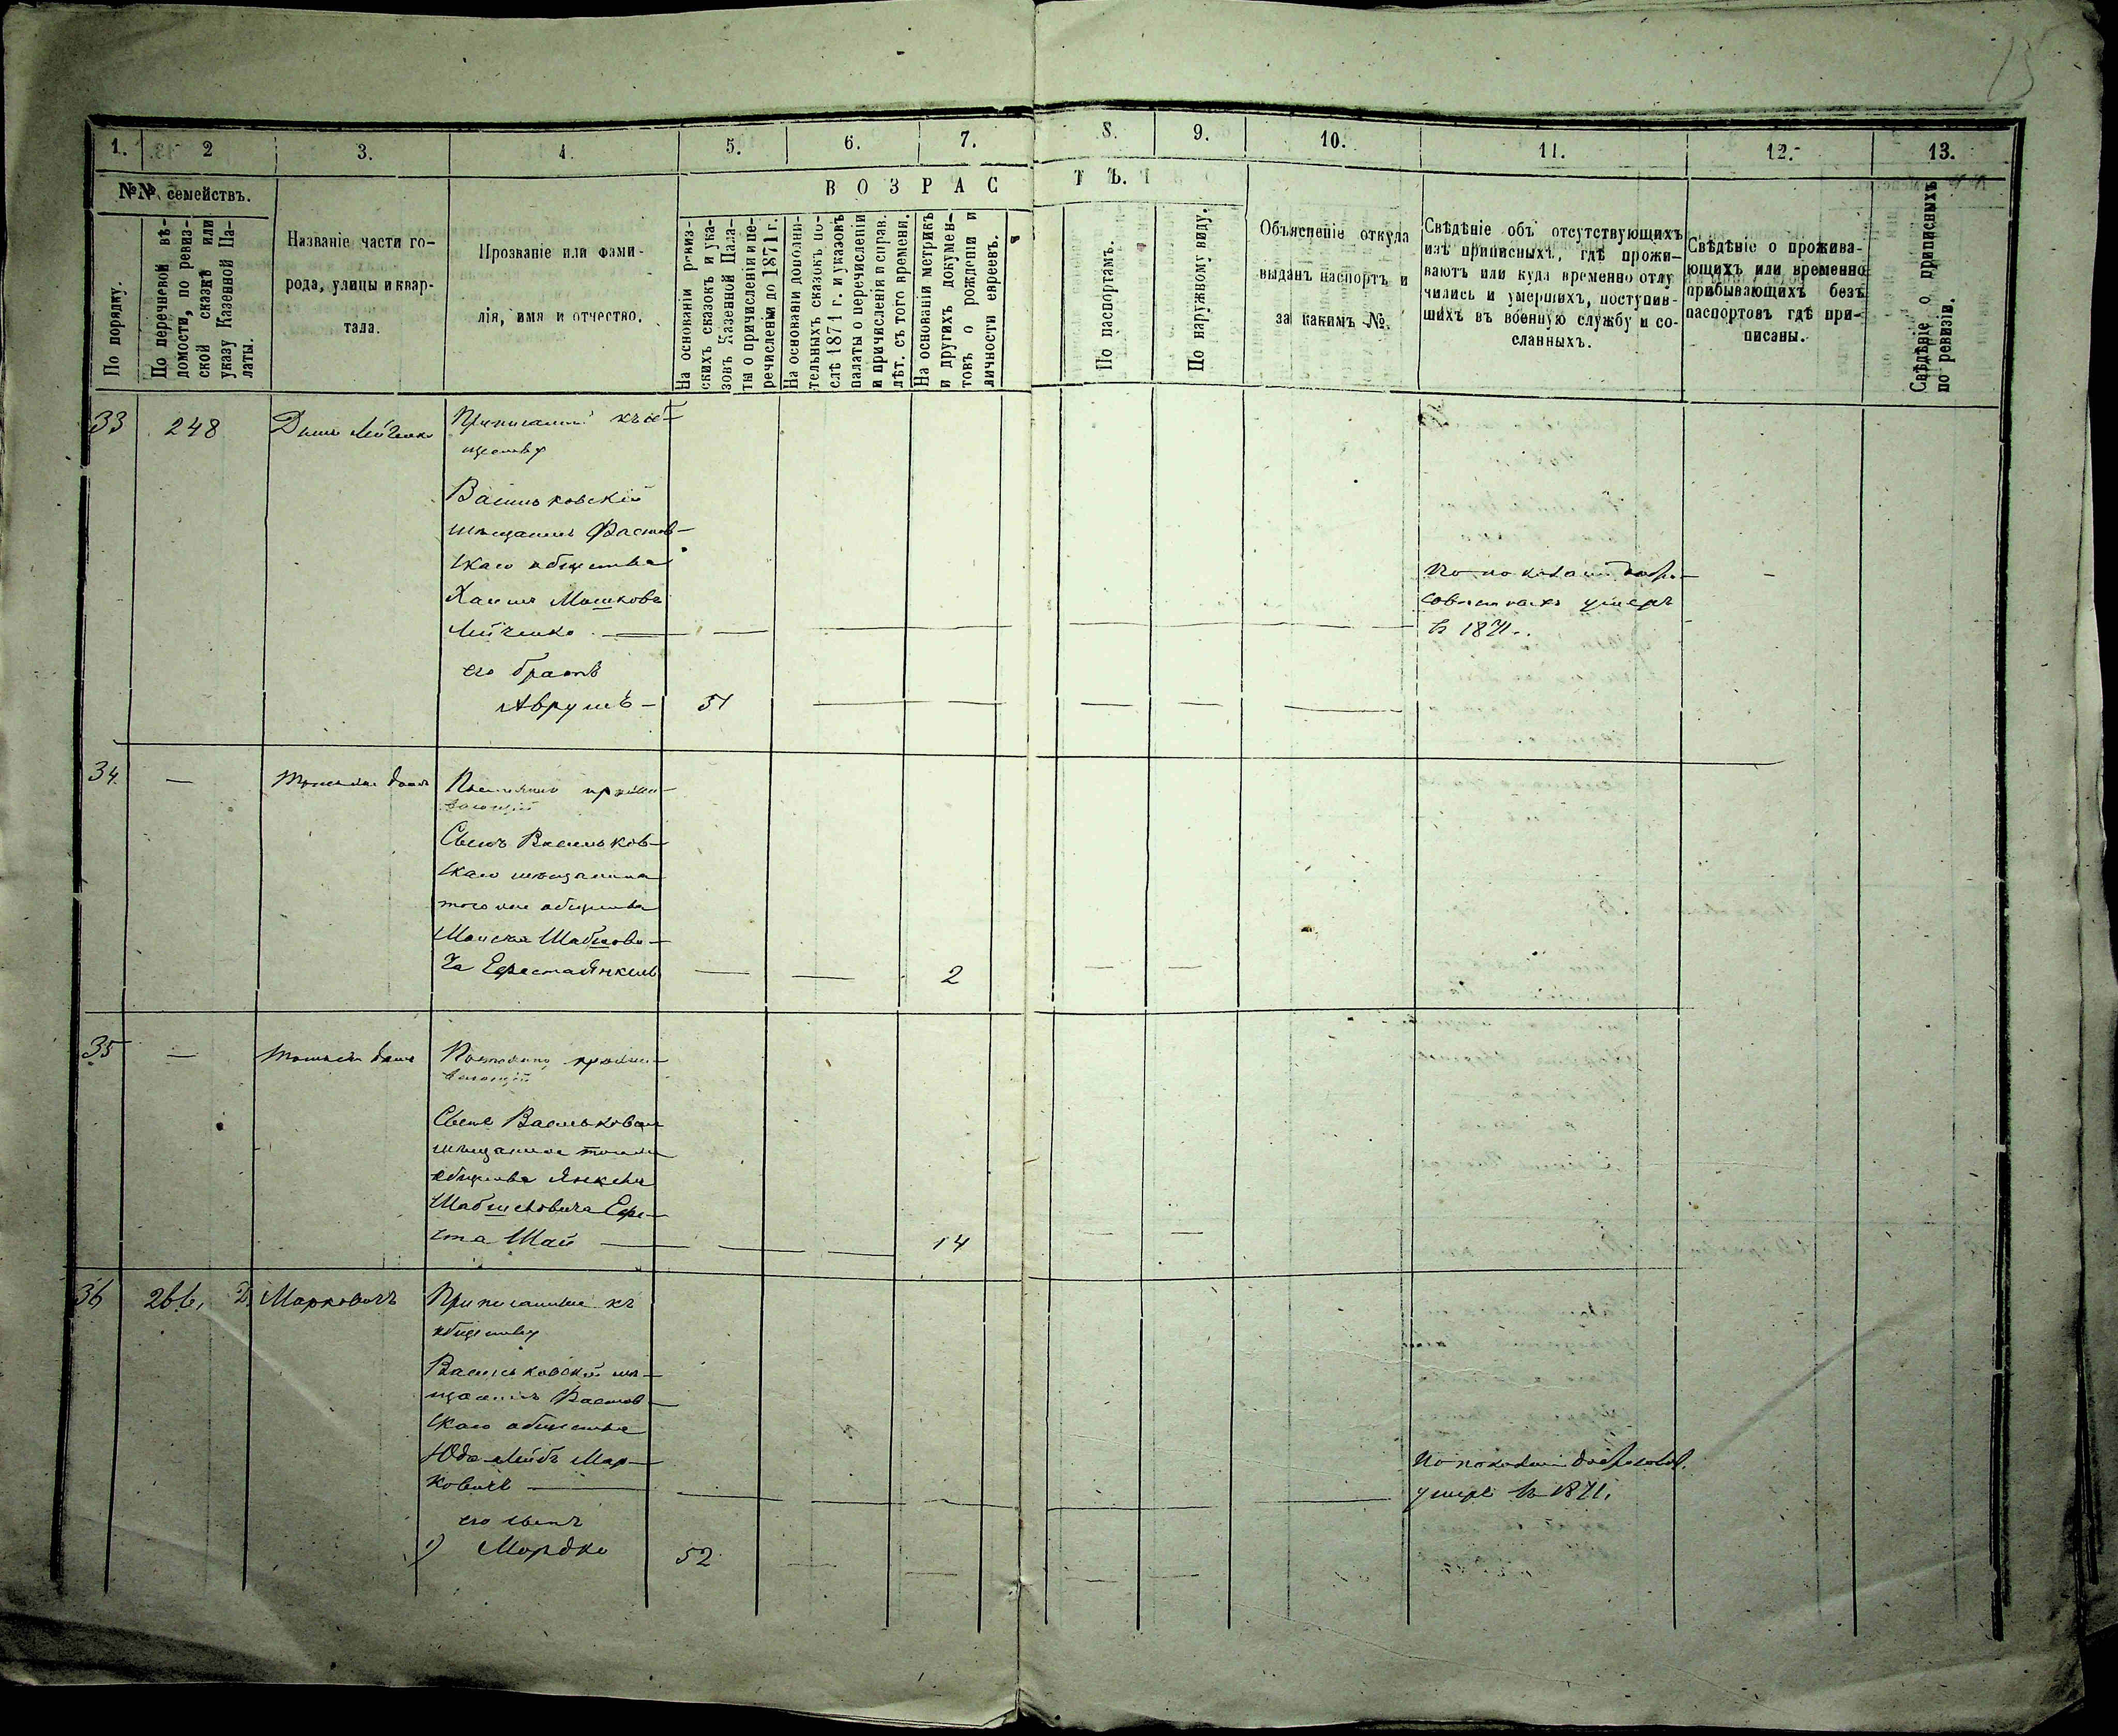 15
1. 2 3. 4. 5. 6. 7. 8. 9. 10. 11. 12. 13.
№№ семействъ.
По порядку.
По перечневой вѣ-
домости, по ревиз-
ской сказкѣ или
указу Казенной Па-
латы.
Названіе части го-
рода, улицы и квар-
тала.
Прозваніе или фами-
лія, имя и отчество.
ВОЗРАСТЪ.
На основаніи ревиз-
скихъ сказокъ и ука-
зовъ Казенной Пала-
ты о причисленіи и пе-
речисленіи до 1871 г.
На основаніи дополни-
тельныхъ сказокъ по-
слѣ 1871 г. и указовъ
палаты о перечисленіи
и причисленіи и справ.
лѣт. съ того времени.
На основаніи метрикъ
и другихъ докумен-
товъ о рожденіи и
личности евреевъ.
По паспортамъ.
По наружному виду.
Объясненіе откуда
выданъ паспортъ и
за какимъ №.
Свѣдѣніе объ отсутствующихъ
изъ приписныхъ, гдѣ прожи-
ваютъ или куда временно отлу
чились и умершихъ, поступив-
шихъ въ военную службу и со-
сланныхъ.
Свѣдѣніе о прожива-
ющихъ или временно
прибывающихъ безъ
паспортовъ гдѣ при-
писаны.
Свѣдѣніе о приписныхъ
по ревизіи.
33 248 Домъ Лейченко
къ об-
ществу
Васильковскій
мѣщанинъ Фастов-
скаго общества
Хаимъ Мошкова
Лейченко — — — — — —
умеръ
въ 1871.
его братъ
Аврумъ — 51 — — — — —
34. — домъ
Постоянно прожи-
вающій
Сынъ Васильков-
скаго мѣщанина
того же общества
Шабсови-
ча Янкель — — 2 — —
35 — домъ
Постоянно прожи-
вающій
Сынъ
мѣщанина
общества Янкеля
Шабшевовича
Шай — — — 14 — —
36 266, Д. Марковичъ
Приписанные къ
обществу
Васильковскій мѣ-
щанинъ Фастов-
скаго общества
Юдо-Лейбъ Мар-
ковичъ — — — — — —
умеръ въ 1871,
его сынъ
1) Мордко 52 — — — —